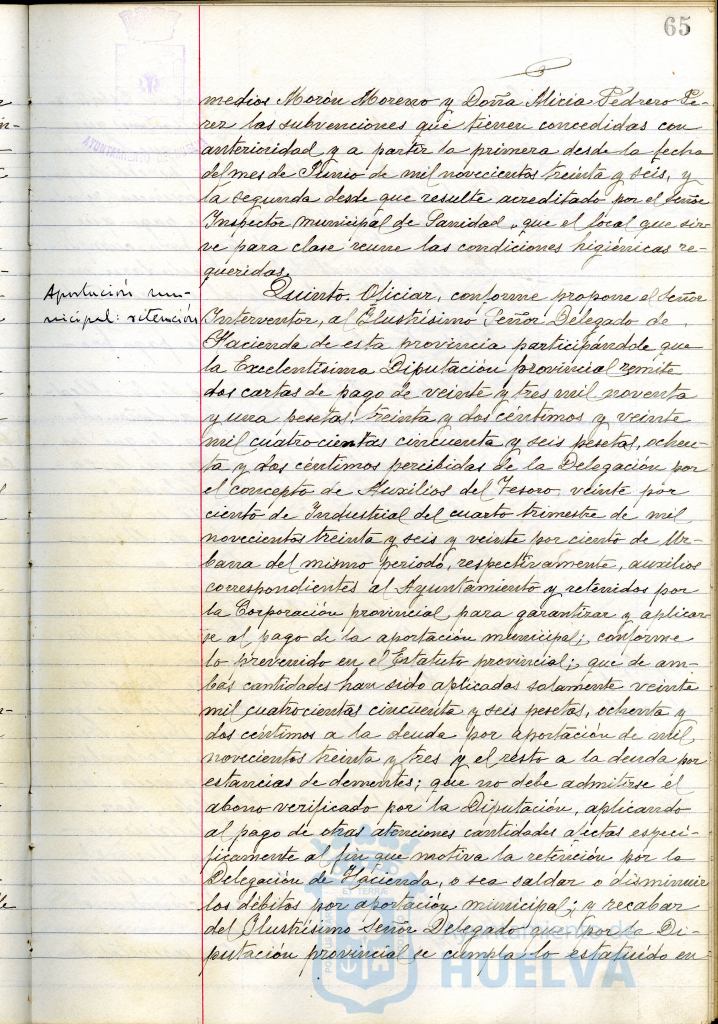 65
medios Morón Moreno y Doña Alicia Pedrero Pe-
rez las subvenciones que tienen concedidas con
anterioridad y a partir la primera desde la fecha
del mes de Junio de mil novecientos treinta y seis, y
la segunda desde que resulte acreditado por el Señor
Inspector municipal de Sanidad, que el local que sir-
ve para clase reune las condiciones higiénicas re-
queridas.
Aportación mu-
nicipal: retención
Quinto. Oficiar, conforme propone el Señor
Interventor, al Ilustrísimo Señor Delegado de
Hacienda de esta provincia participándole que
la Excelentísima Diputación provincial remite
dos cartas de pago de veinte y tres mil noventa
y una pesetas, treinta y dos céntimos y veinte
mil cuatrocientas cincuenta y seis pesetas, ochen-
ta y dos céntimos percibidas de la Delegación por
el concepto de Auxilios del Tesoro, veinte por
ciento de Industrial del cuarto trimestre de mil
novecientos treinta y seis y veinte por ciento de Ur-
bana del mismo periodo, respectivamente, auxilios
correspondientes al Ayuntamiento y retenidos por
la Corporación provincial para garantizar y aplicar-
se al pago de la aportación municipal; conforme
lo prevenido en el Estatuto provincial; que de am-
bas cantidades han sido aplicadas solamente veinte
mil cuatrocientas cincuenta y seis pesetas, ochenta y
dos céntimos a la deuda por aportación de mil
novecientos treinta y tres y el resto a la deuda por
estancias de dementes; que no debe admitirse el
abono verificado por la Diputación, aplicando
al pago de otras atenciones cantidades afectas especí-
ficamente al fin que motiva la retención por la
Delegación de Hacienda, o sea saldar o disminuir
los débitos por aportación municipal; y recabar
del Ilustrísimo Señor Delegado que por la Di-
putación provincial se cumpla lo estatuído en
Ayuntamiento de
HUELVA